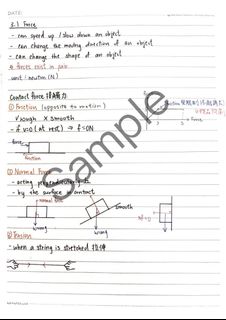 DATE:
3.1 Force
- can speed up / slow down an object
- can change the moving direction of an object
- can change the shape of an object
* forces exist in pair
unit: newton (N)
Contact force 接觸力
① Friction (opposite to motion)
√ rough × smooth
- if v=0 (at rest) → f=0N
Force
friction
② Normal Force
- acting perpendicularly
- by the surface in contact
normal force
smooth
W=mg
W=mg
③ Tension
- when a string is stretched 拉伸
Sample